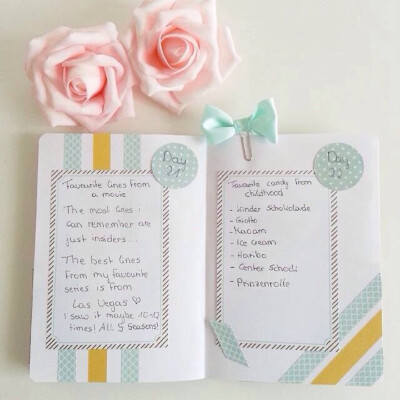 Day
21
Favourite lines from
a movie
The most lines I
can remember are
just insiders...
The best lines
from my favourite
series is from
Las Vegas ♡
I saw it maybe 10-12
times! ALL 5 Seasons!
Day
22
Favourite candy from
childhood
- Kinder Schokolade
- Giotto
- Kaoam
- Ice cream
- Haribo
- Center Schock
- Prinzenrolle